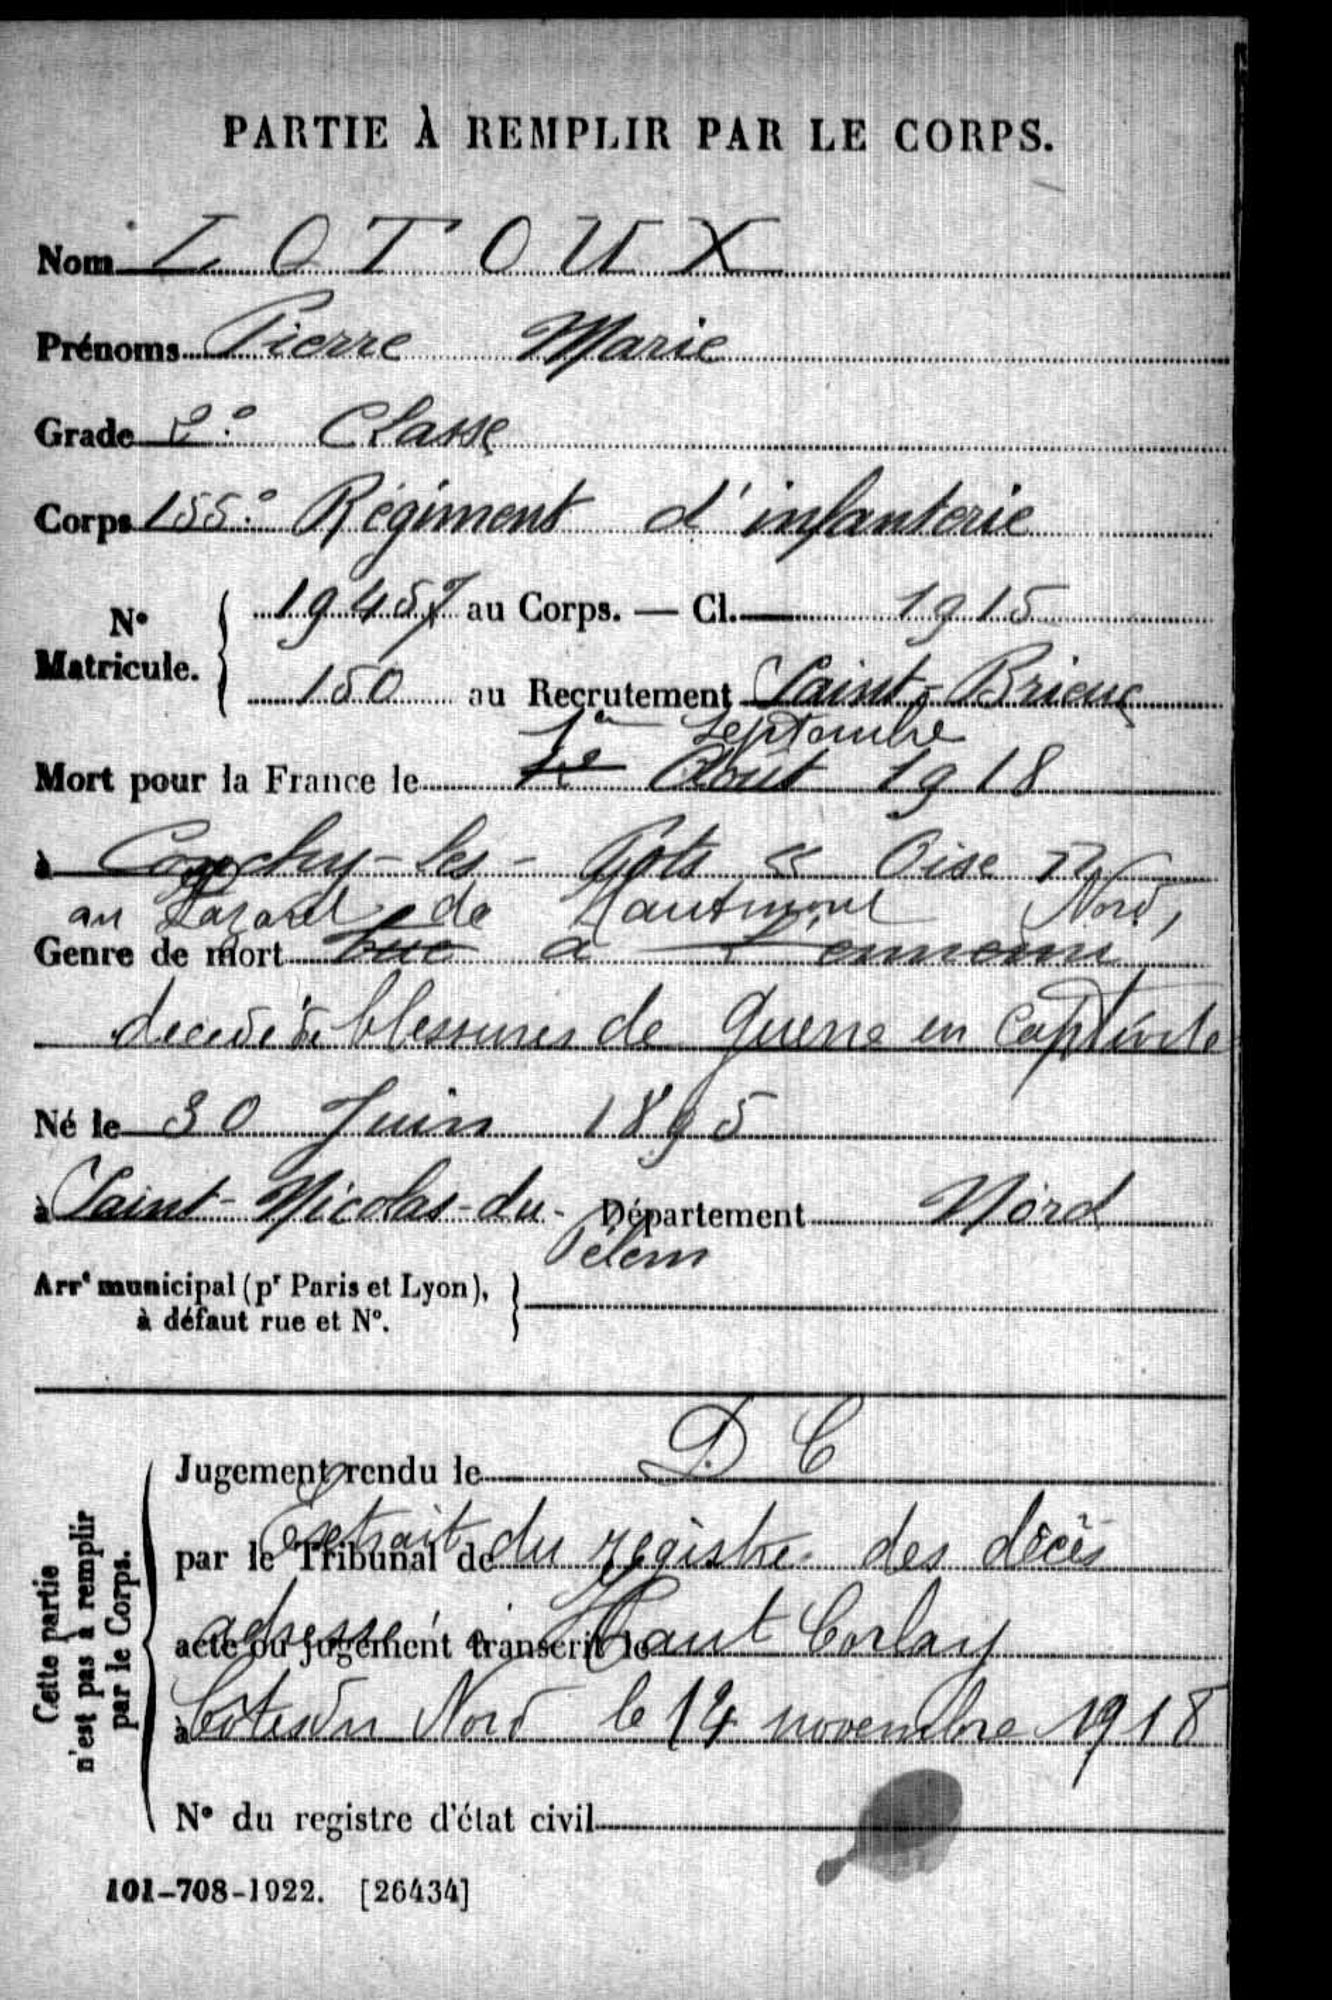 PARTIE À REMPLIR PAR LE CORPS.
Nom LOTOUX
Prénoms Pierre Marie
Grade 2e Classe
Corps 155e Régiment d'infanterie
No Matricule. 19457 au Corps. — Cl. 1915
150 au Recrutement Saint-Brieuc
1er Septembre
Mort pour la France le 1er Août 1918
à Conchy-les-Pots « Oise »
au Lazaret de Hautmont Nord,
Genre de mort tué à l'ennemi
décédé de blessures de guerre en captivité
Né le 30 Juin 1895
à Saint-Nicolas-du- Département Nord
Pélem
Arrt municipal (pr Paris et Lyon),
à défaut rue et No.
Cette partie
n'est pas à remplir
par le Corps.
Jugement rendu le D C
par le Tribunal de Extrait du registre des décès
acte ou jugement transcrit le adressé à Haut Corlay
à Côtes du Nord le 14 novembre 1918
No du registre d'état civil
101-708-1922. [26434]